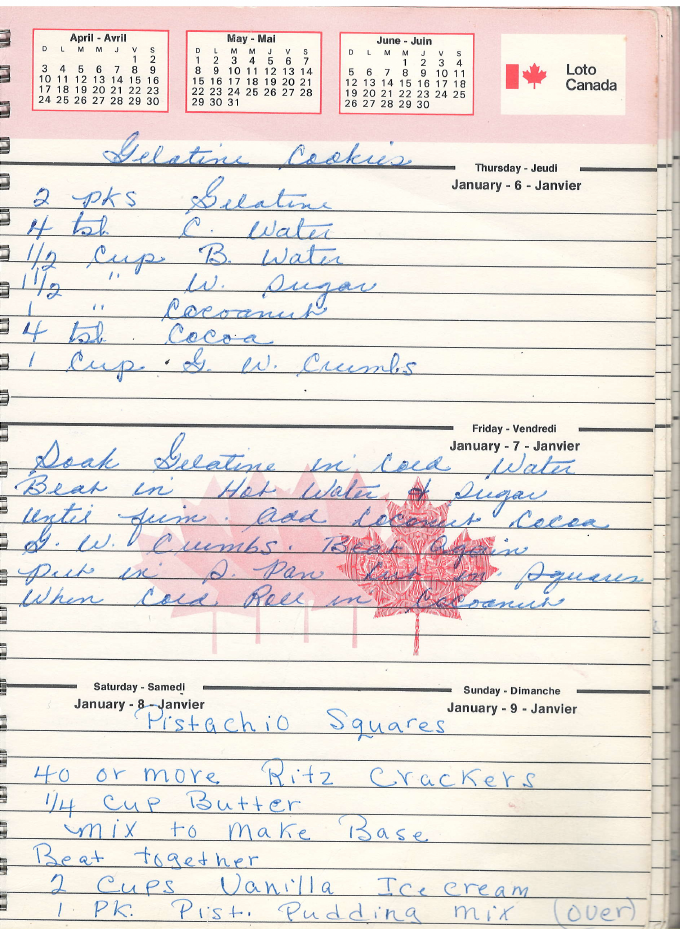 April - Avril
D L M M J V S
1 2
3 4 5 6 7 8 9
10 11 12 13 14 15 16
17 18 19 20 21 22 23
24 25 26 27 28 29 30
May - Mai
D L M M J V S
1 2 3 4 5 6 7
8 9 10 11 12 13 14
15 16 17 18 19 20 21
22 23 24 25 26 27 28
29 30 31
June - Juin
D L M M J V S
1 2 3 4
5 6 7 8 9 10 11
12 13 14 15 16 17 18
19 20 21 22 23 24 25
26 27 28 29 30
Loto
Canada
Gelatine Cookies
Thursday - Jeudi
January - 6 - Janvier
2 pks Gelatine
4 tsb C. Water
1/2 Cup B. Water
1 1/2 " W. Sugar
1 " Cocoanut
4 tsb Cocoa
1 Cup . G. W. Crumbs
Friday - Vendredi
January - 7 - Janvier
Soak Gelatine in Cold Water
Beat in Hot Water & Sugar
until firm. Add Coconut Cocoa
G. W. Crumbs. Beat Again
put in S. Pan Cut in Squares
When Cold Roll in Cocoanut
Saturday - Samedi
January - 8 - Janvier
Sunday - Dimanche
January - 9 - Janvier
Pistachio Squares
40 or more Ritz Crackers
1/4 Cup Butter
mix to make Base
Beat together
2 Cups Vanilla Ice cream
1 PK. Pist. Pudding mix (over)